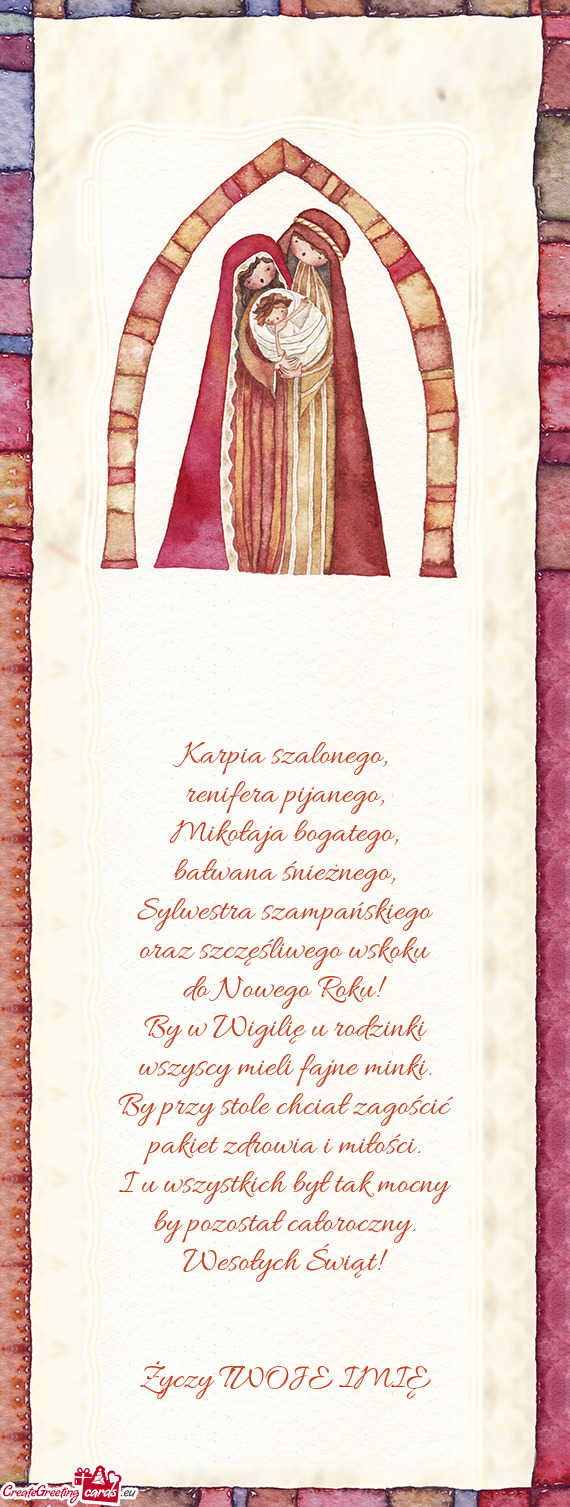 Karpia szalonego,
renifera pijanego,
Mikołaja bogatego,
bałwana śnieżnego,
Sylwestra szampańskiego
oraz szczęśliwego wskoku
do Nowego Roku!
By w Wigilię u rodzinki
wszyscy mieli fajne minki.
By przy stole chciał zagościć
pakiet zdrowia i miłości.
I u wszystkich był tak mocny
by pozostał całoroczny.
Wesołych Świąt!
Życzy TWOJE IMIĘ
CreateGreeting cards .eu